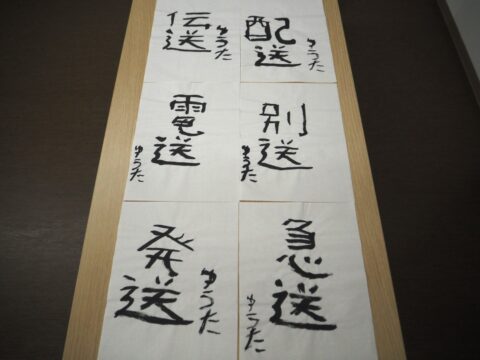 伝送
ゆうた
配送
ゆうた
電送
ゆうた
別送
ゆうた
発送
ゆうた
急送
ゆうた